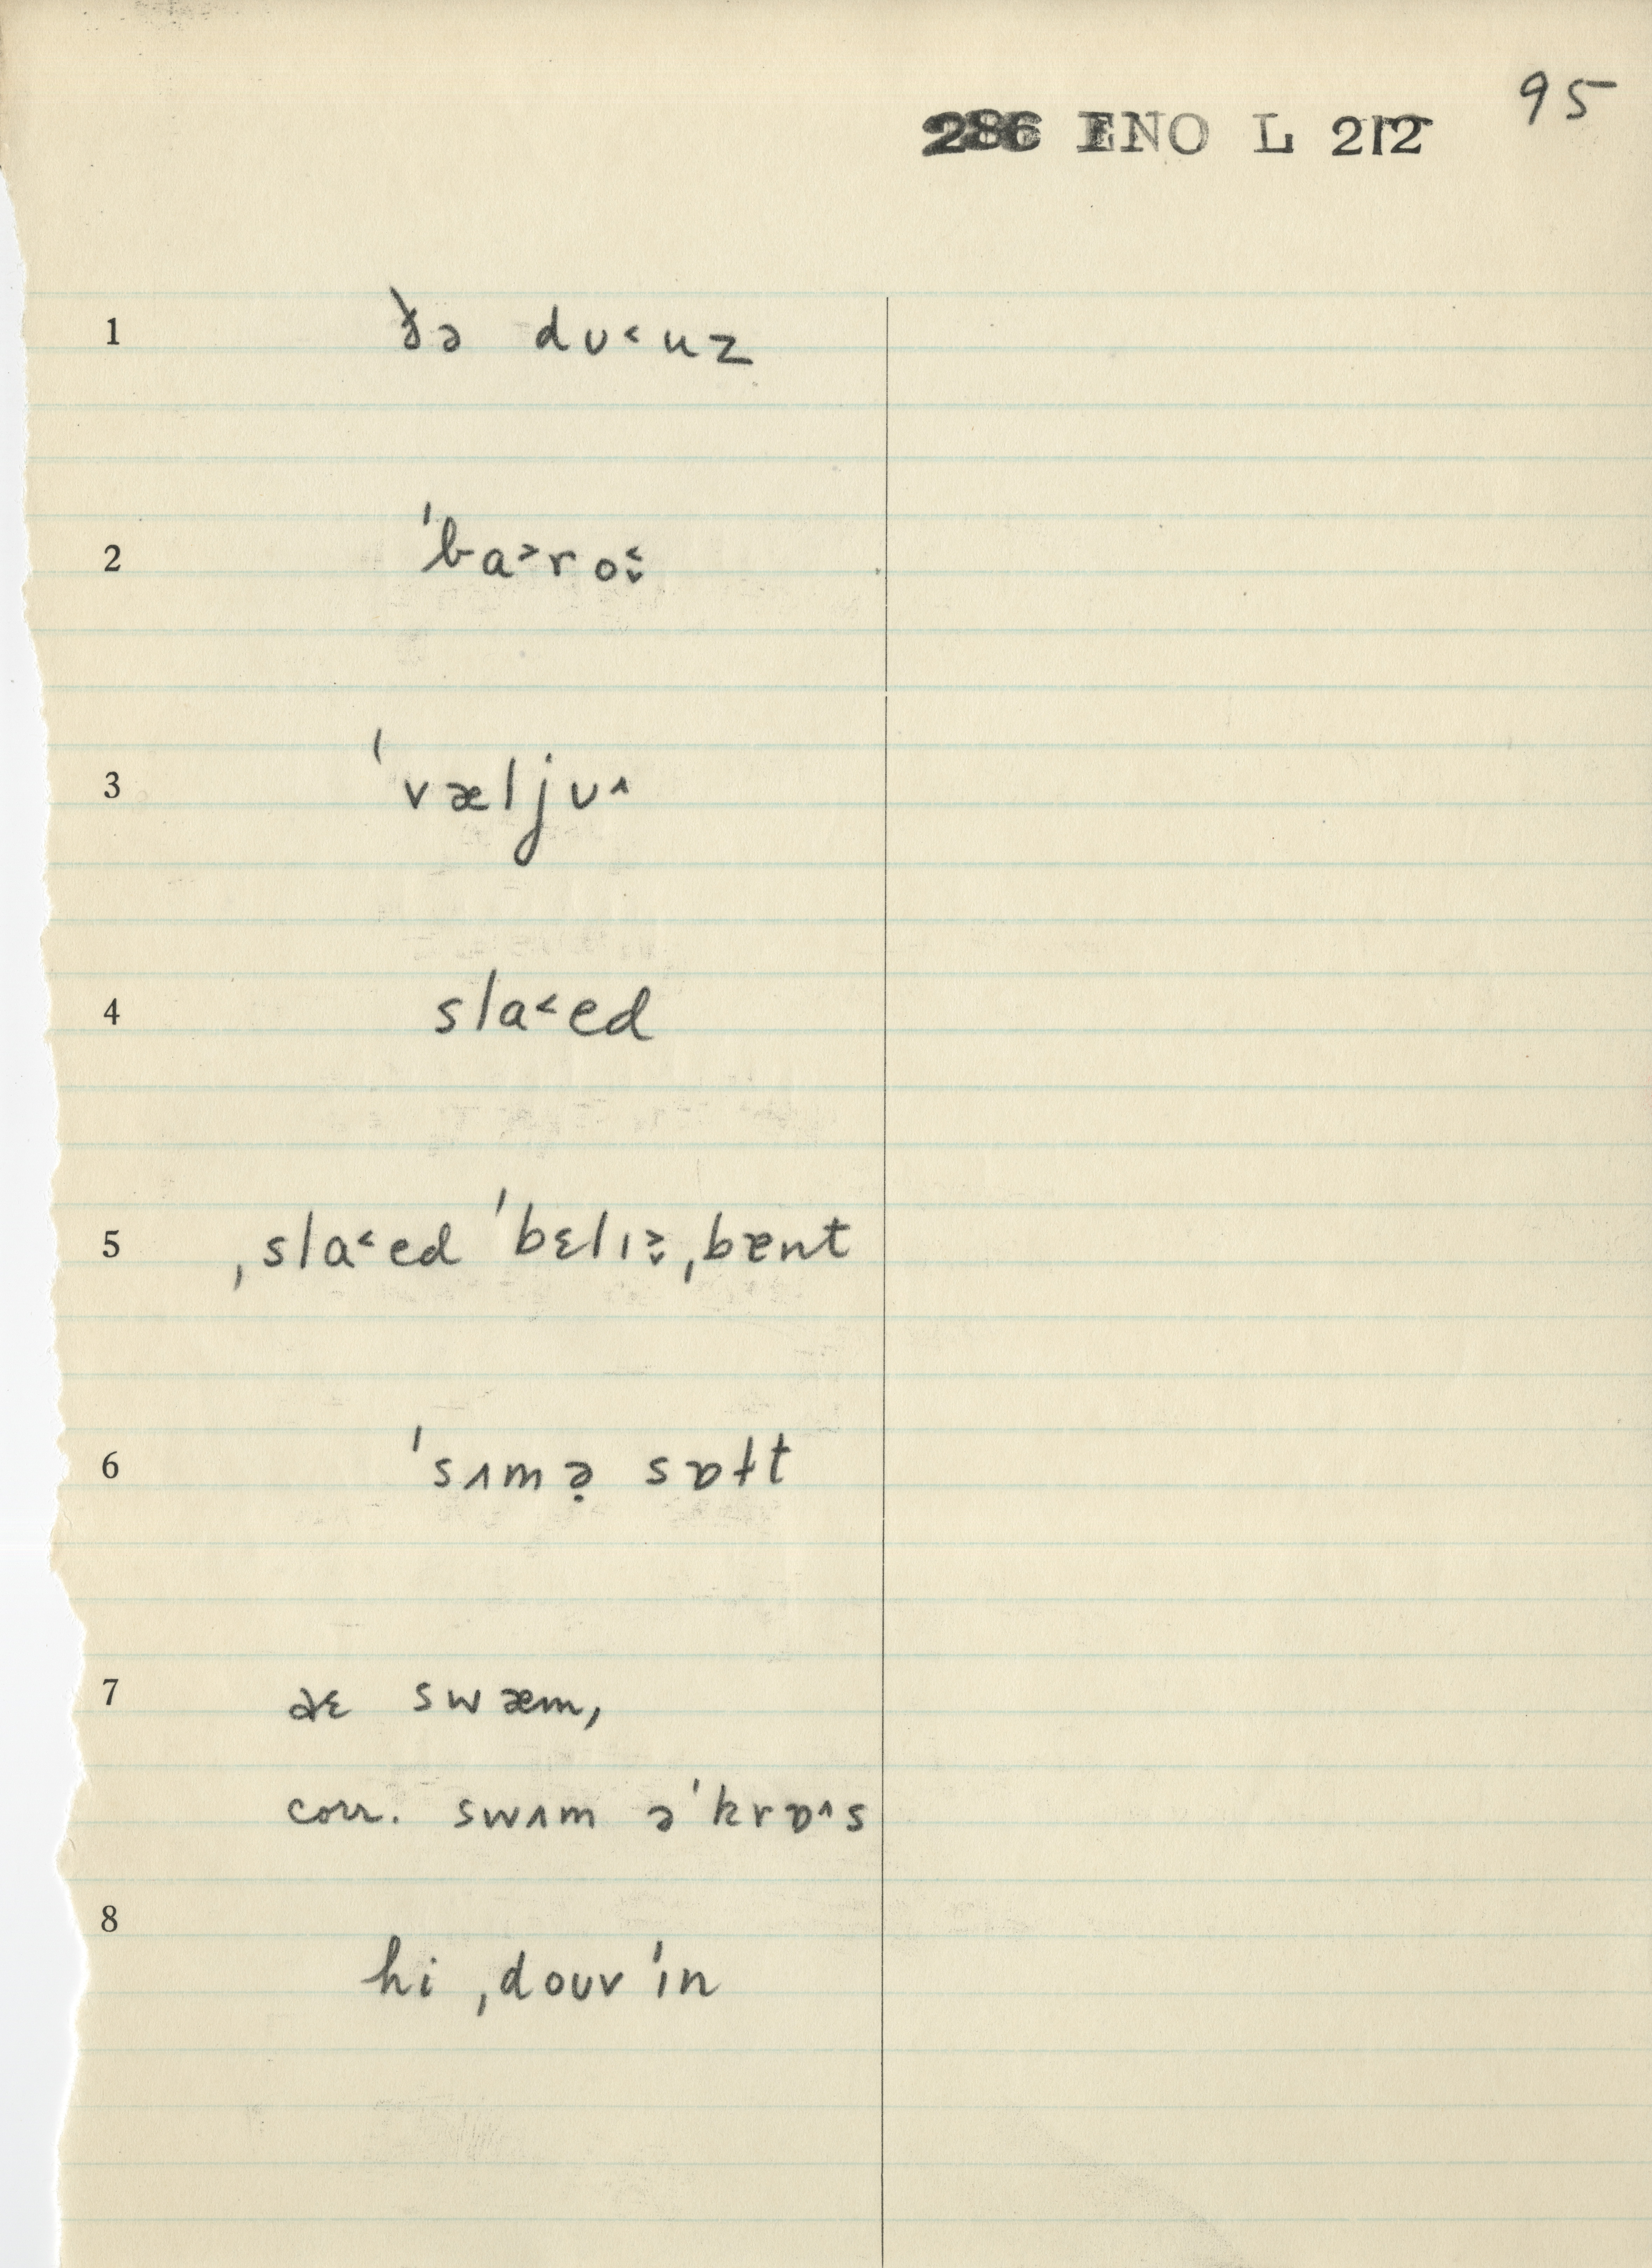 95
286 ENO L 212
1 ðə dʊ˂uz
2 ˈba˃ro˂̬
3 ˈvæljʊ˄
4 sla˂ed
5 ˌsla˂ed ˈbɛlɪ˃̬ ˌbɐnt
6 ˈsʌmə̣ sɒɫt
7 aɛ swæm,
corr. swʌm əˈkrɒ˄s
8 hi ˌdouv ˈɪn